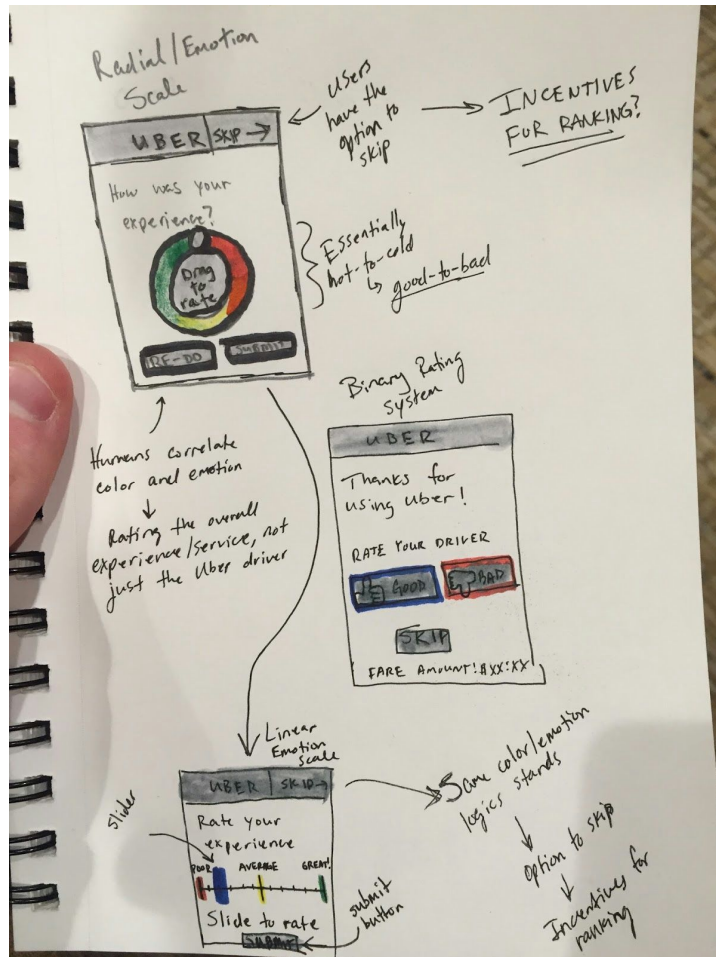 Radial/Emotion
Scale
UBER SKIP →
How was your
experience?
Drag
to
rate
RE-DO SUBMIT
users
have the
option to
skip
INCENTIVES
FOR RANKING?
Essentially
hot-to-cold
↳ good-to-bad
Humans correlate
color and emotion
↓
Rating the overall
experience/service, not
just the Uber driver
Binary Rating
System
UBER
Thanks for
using Uber!
RATE YOUR DRIVER
GOOD BAD
SKIP
FARE AMOUNT: $XX.XX
Linear
Emotion
Scale
UBER SKIP →
Rate your
experience
POOR AVERAGE GREAT!
Slide to rate
SUBMIT
Slider
submit
button
Same color/emotion
logics stands
option to skip
Incentives for
ranking